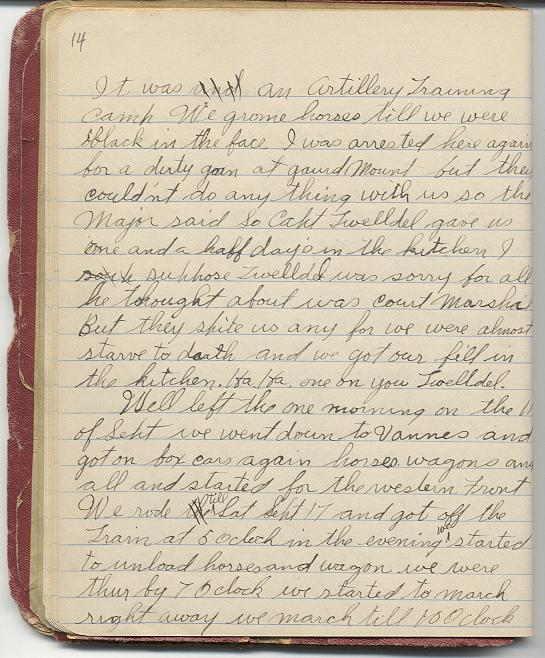 14
It was and an Artillery Training
camp We grome horses till we were
black in the face. I was arrested here again
for a dirty gon at gaurd Mount but they
couldn't do any thing with us so the
Major said So Capt Twelldel gave us
one and a half days in the kitchen I
suppose Twelldel was sorry for all
he thought about was court Marshal
But they spite us any for we were almost
starve to death and we got our fill in
the kitchen. Ha, Ha, one on you Twelldel.
Well left the one morning on the 11
of Sept we went down to Vannes and
got on box cars again horses. wagons and
all and started for the western Front
We rode till Sat Sept 17 and got off the
Train at 5 oclock in the evening we started
to unload horses and wagon we were
thur by 7 Oclock we started to march
right away we march till 10 Oclock